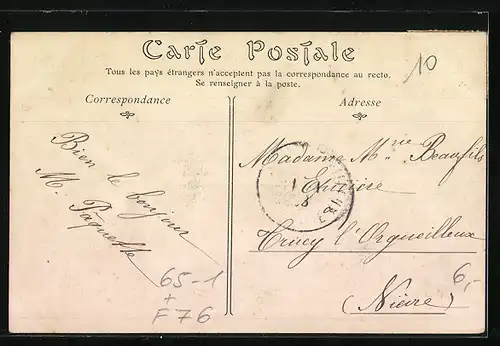 Carte Postale
10
Tous les pays étrangers n'acceptent pas la correspondance au recto.
Se renseigner à la poste.
Correspondance
Adresse
Bien le bonjour
M. Paquette
Madame Mie Beaufils
Epicière
Trucy l'Orgueilleux
(Nièvre)
6,-
65-1
+
F76